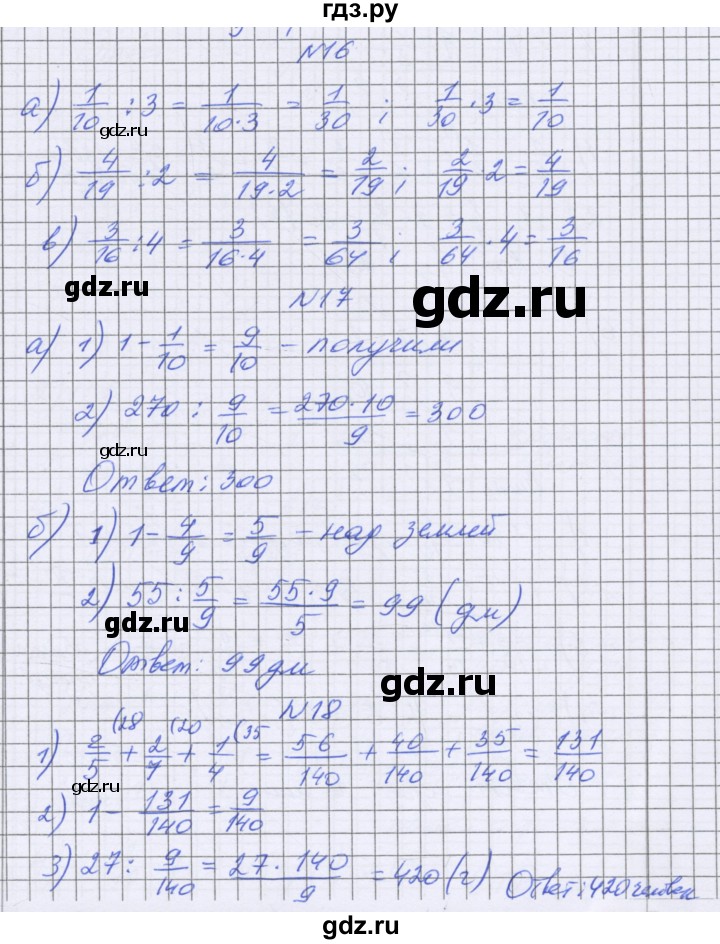 гдз.ру
№16
а) 1/10 : 3 = 1/(10·3) = 1/30 ; 1/30 · 3 = 1/10
gdz.ru
б) 4/19 : 2 = 4/(19·2) = 2/19 ; 2/19 · 2 = 4/19
в) 3/16 : 4 = 3/(16·4) = 3/64 ; 3/64 · 4 = 3/16
gdz.ru
gdz.ru
№17
а) 1) 1 - 1/10 = 9/10 - получили
2) 270 : 9/10 = (270·10)/9 = 300
gdz.ru
Ответ: 300
б) 1) 1 - 4/9 = 5/9 - над землей
2) 55 : 5/9 = (55·9)/5 = 99 (дм)
gdz.ru
Ответ: 99 дм
gdz.ru
№18
1) 2/5 (28 + 2/7 (20 + 1/4 (35 = 56/140 + 40/140 + 35/140 = 131/140
gdz.ru
2) 1 - 131/140 = 9/140
3) 27 : 9/140 = (27·140)/9 = 420 (ч) Ответ: 420 человек
gdz.ru
gdz.ru